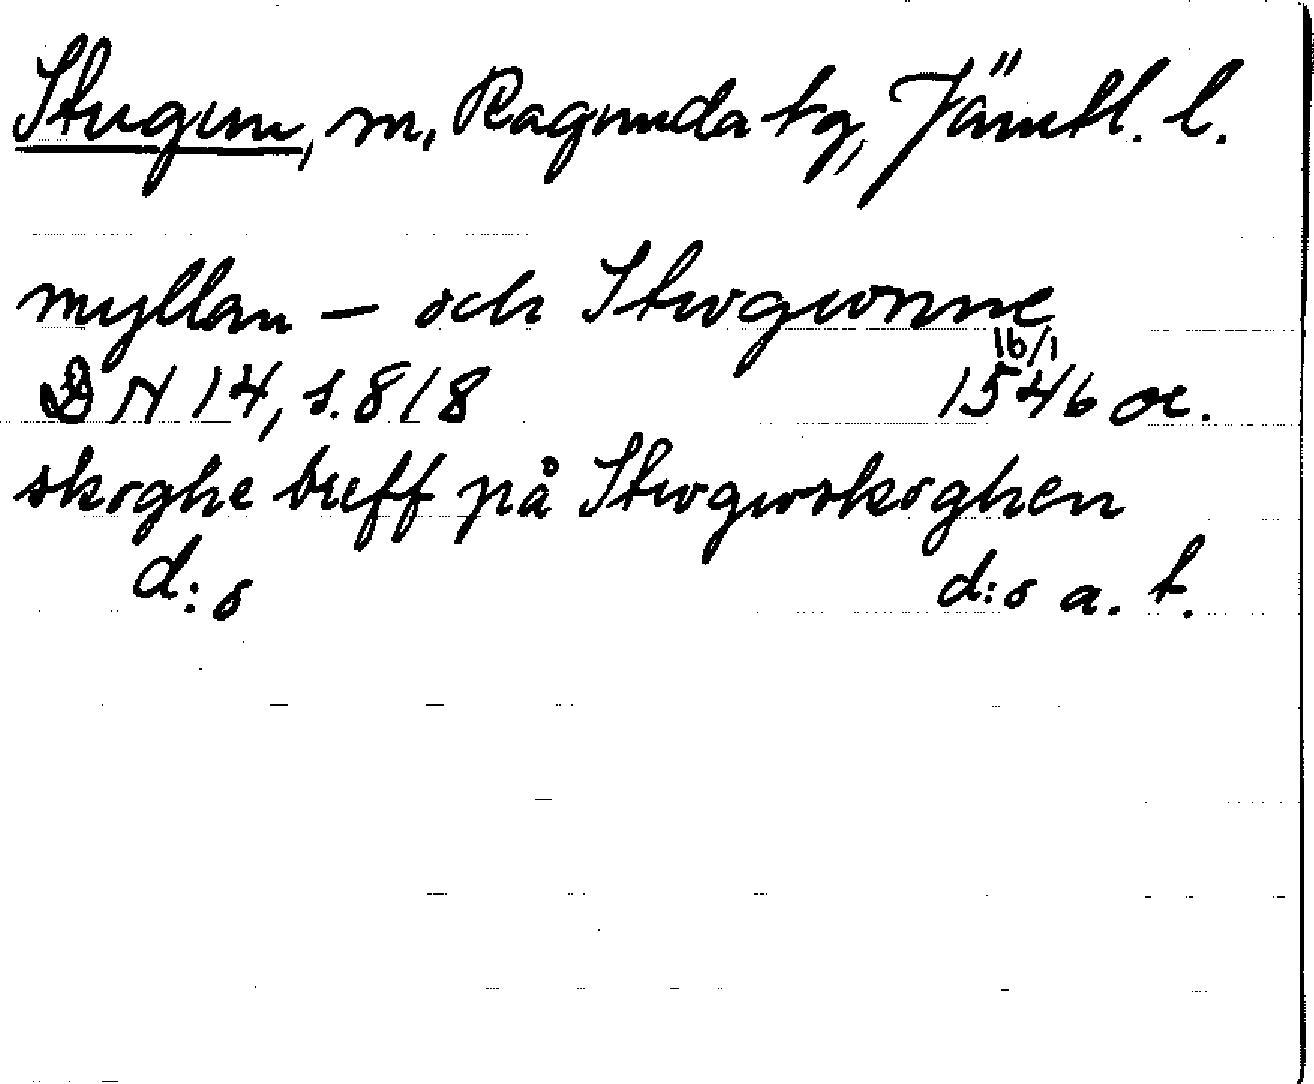 Stugun, sn, Ragunda tg, Jämtl. l.
myllan – och Stwgwnne
DN 14, s. 818 16/1 1546 or.
skoghe breff på Stwgwskoghen
d:o d:o a. t.